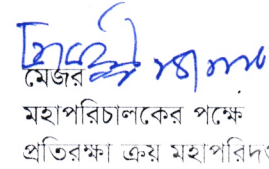 মেজর
মহাপরিচালকের পক্ষে
প্রতিরক্ষা ক্রয় মহাপরিদ